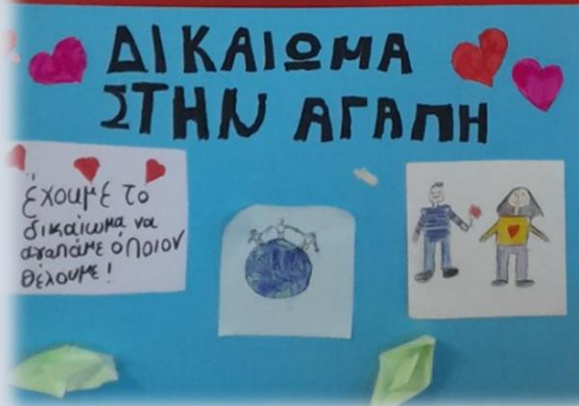 ΔΙΚΑΙΩΜΑ
ΣΤΗΝ ΑΓΑΠΗ
Έχουμε το
δικαίωμα να
αγαπάμε όποιον
θέλουμε!